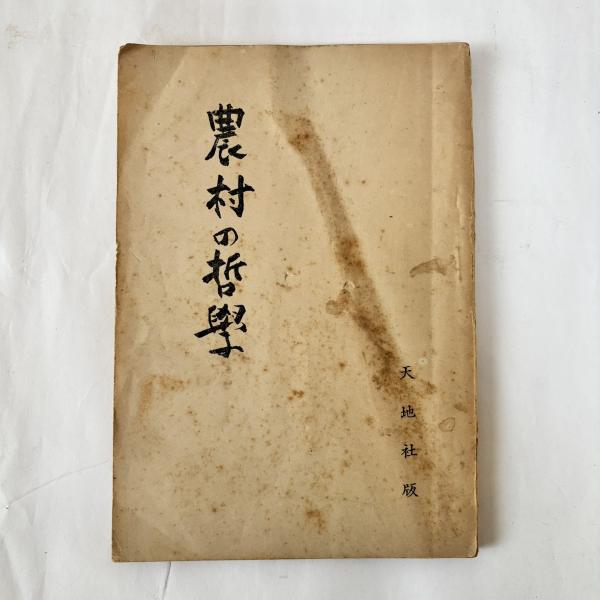 農村の哲學
天地社版